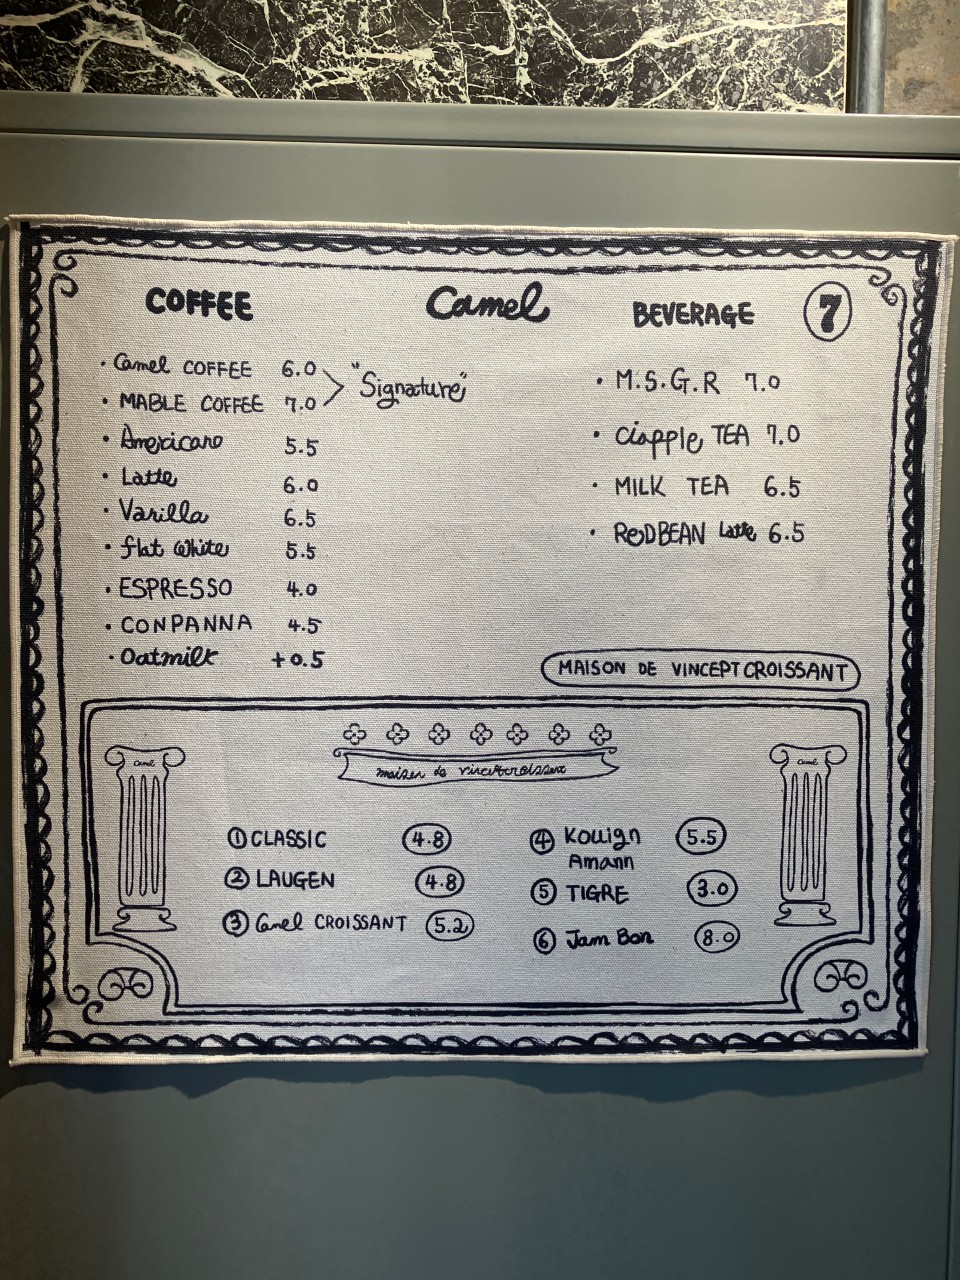 COFFEE
Camel
BEVERAGE
7
· Camel COFFEE 6.0
· MABLE COFFEE 7.0
"Signature"
· Americano 5.5
· Latte 6.0
· Vanilla 6.5
· flat white 5.5
· ESPRESSO 4.0
· CONPANNA 4.5
· Oatmilk +0.5
· M.S.G.R 7.0
· Ciapple TEA 7.0
· MILK TEA 6.5
· ReDBEAN Latte 6.5
MAISON DE VINCEPT CROISSANT
Camel
Camel
① CLASSIC 4.8
② LAUGEN 4.8
③ Camel CROISSANT 5.2
④ Kouign
Amann 5.5
⑤ TIGRE 3.0
⑥ Jam Bon 8.0